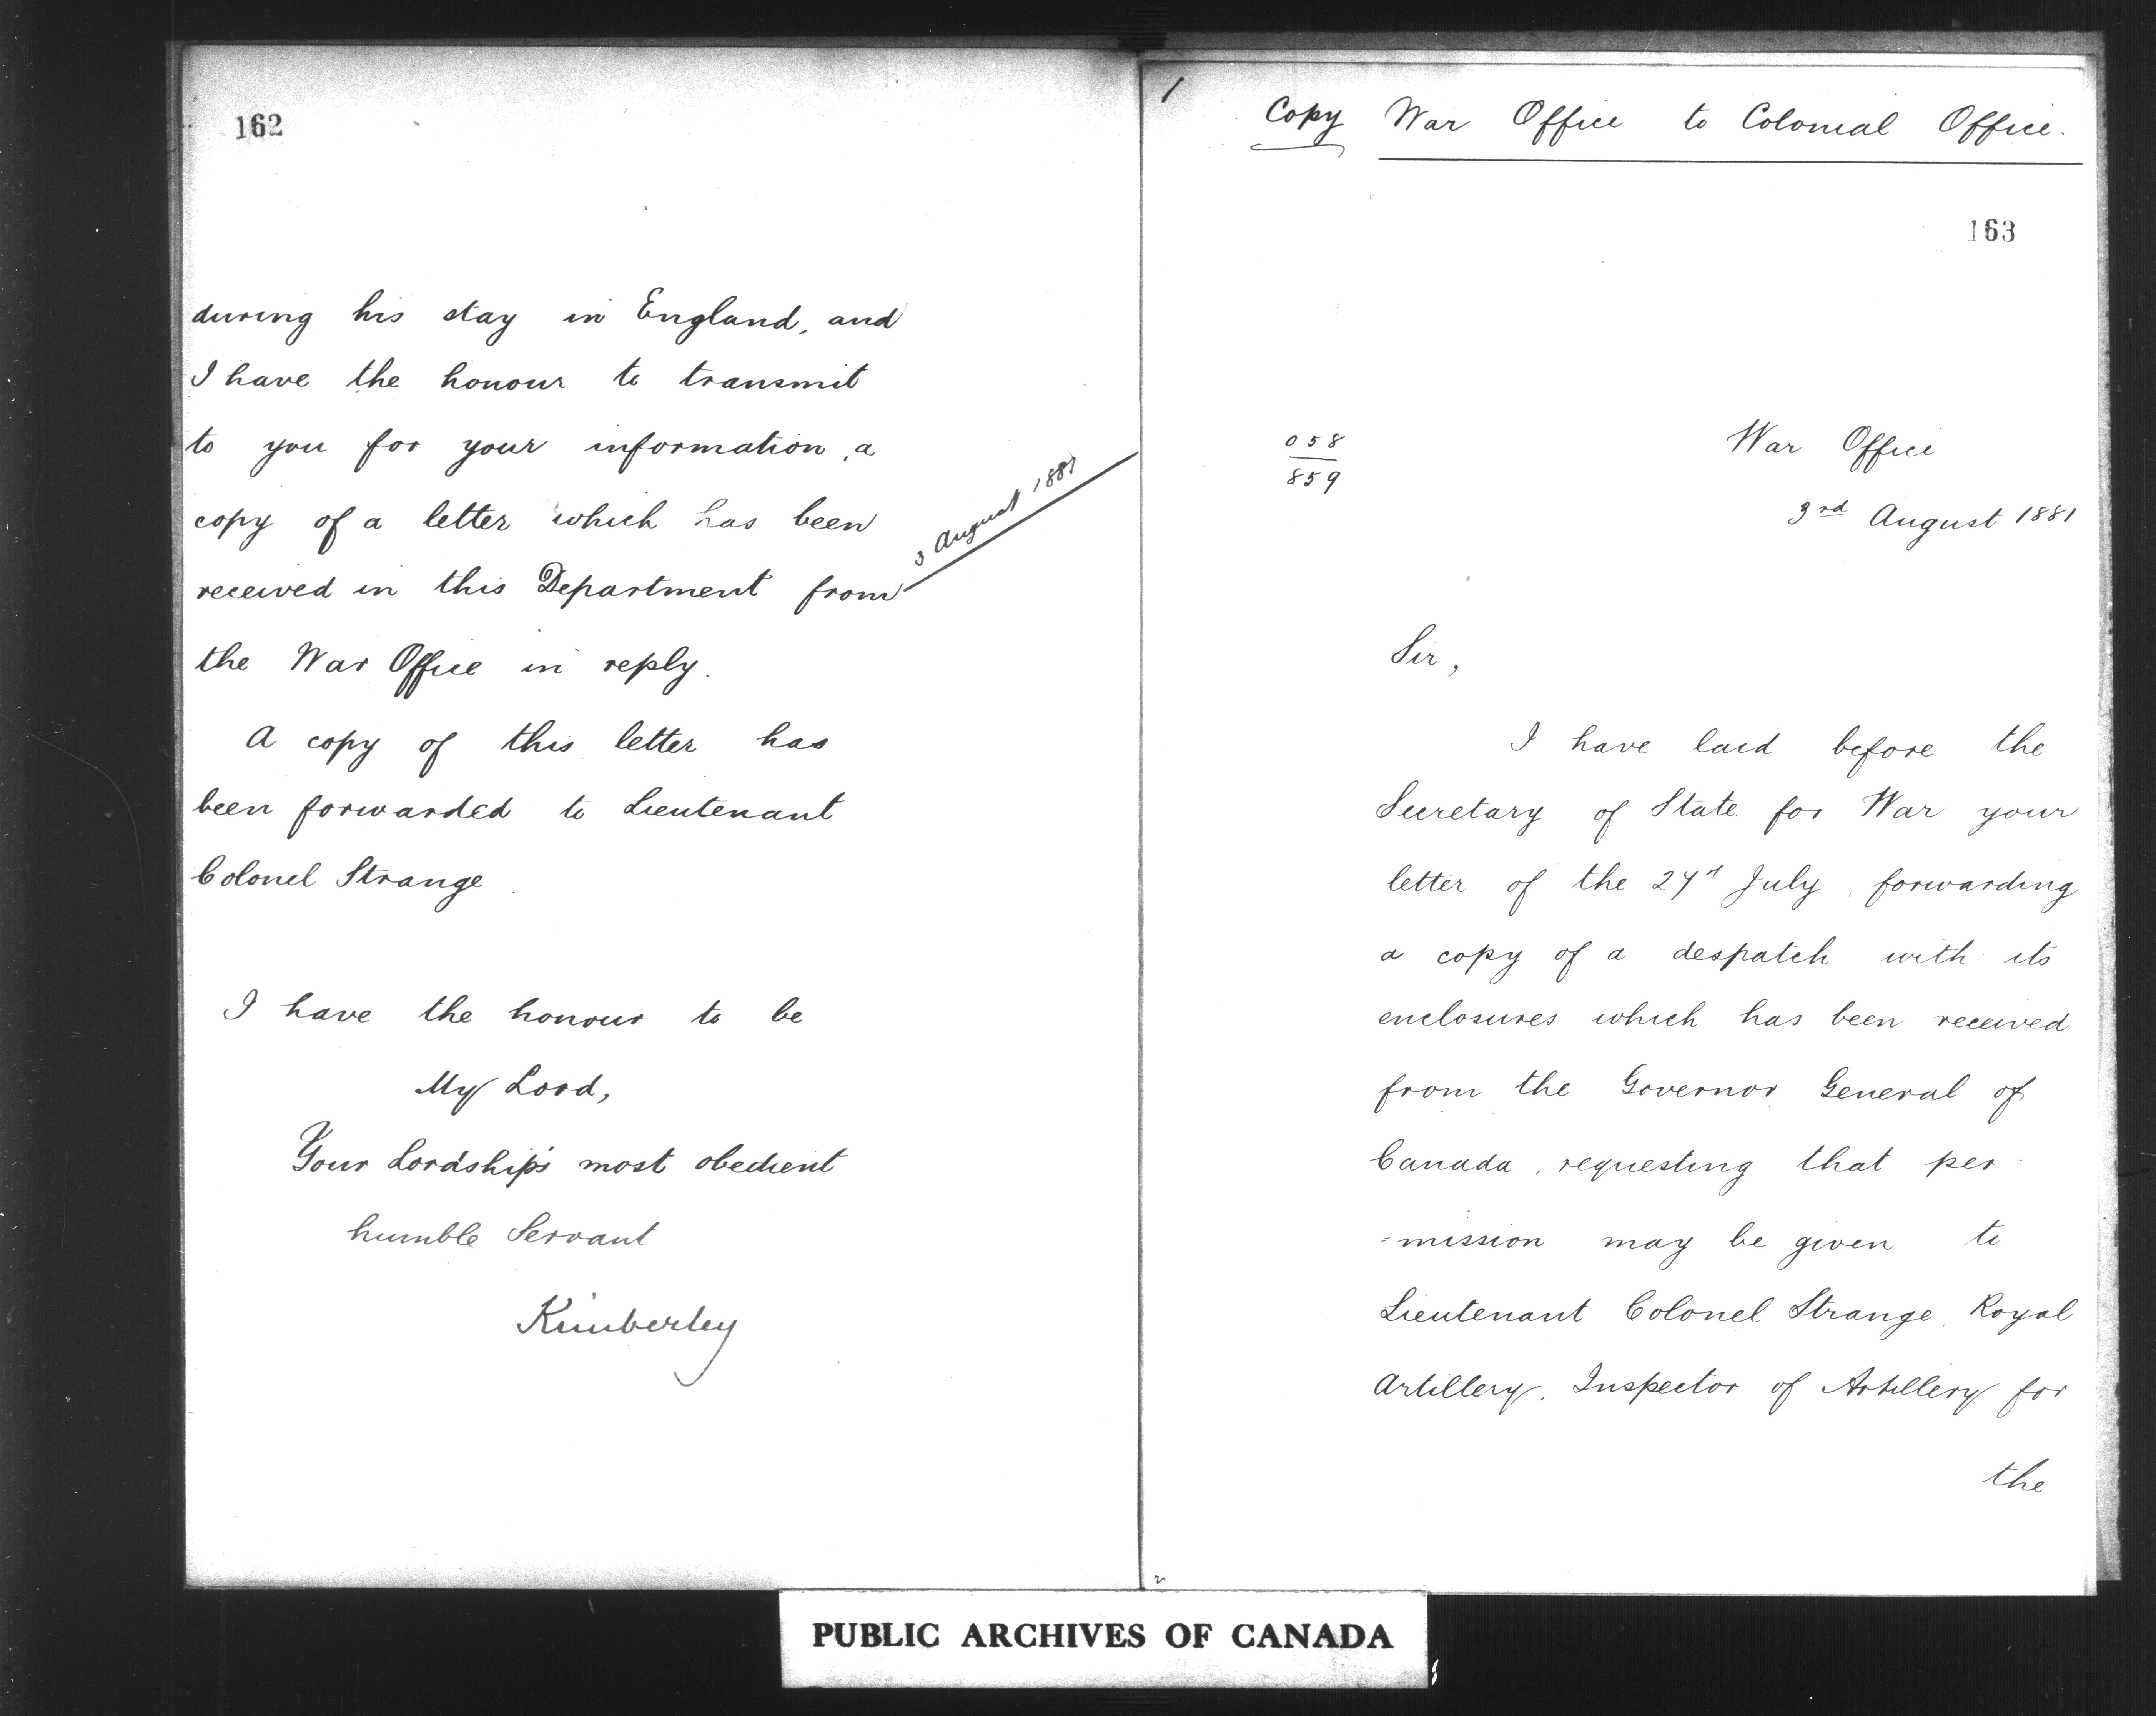 162
during his stay in England, and
I have the honour to transmit
to you for your information, a
copy of a letter which has been
received in this Department from
3 August 1881
the War Office in reply.
A copy of this letter has
been forwarded to Lieutenant
Colonel Strange
I have the honour to be
My Lord,
Your Lordship's most obedient
humble Servant
Kimberley
1
Copy War Office to Colonial Office.
163
058
859
War Office
3rd August 1881
Sir,
I have laid before the
Secretary of State for War your
letter of the July, forwarding
a copy of a despatch with its
enclosures which has been received
from the Governor General of
Canada, requesting that per=
=mission may be given to
Lieutenant Colonel Strange, Royal
Artillery, Inspector of Artillery for
the
PUBLIC ARCHIVES OF CANADA